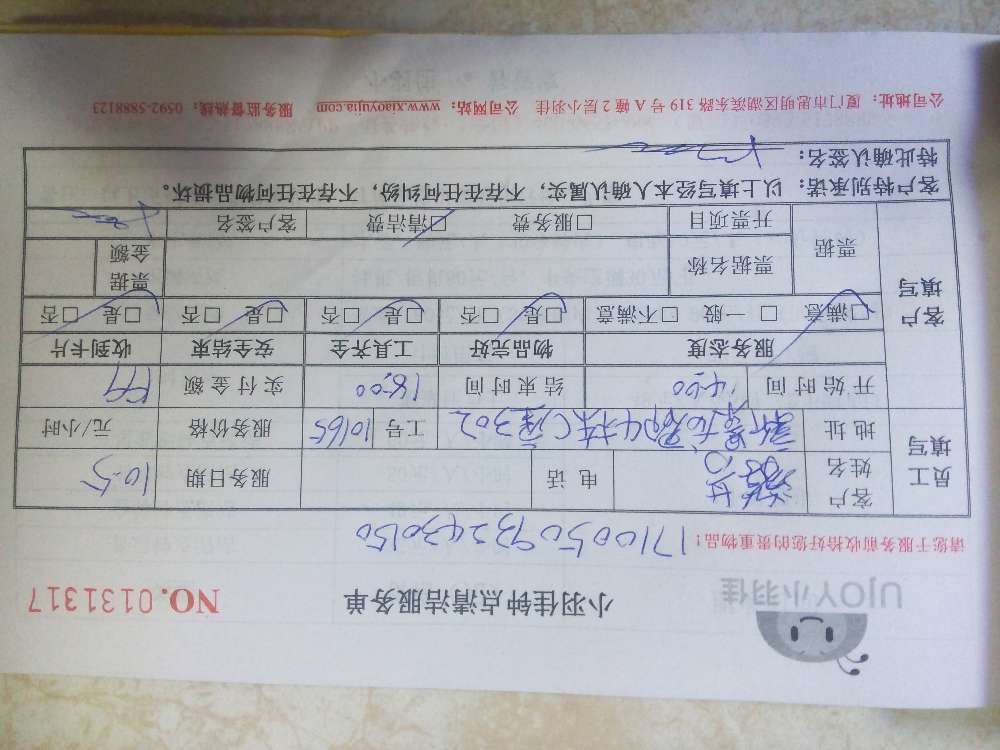 UJOY小羽佳
小羽佳钟点清洁服务单
NO.0131317
请您于服务前收拾好您的贵重物品！
员工填写 客户姓名 电 话 服务日期 10-5
地 址 工号 10165 服务价格 元/小时
开 始 时 间 14:00 结 束 时 间 18:00 实 付 金 额
客户填写 服务态度 物品完好 工具齐全 安全结束 收到卡片
□满意 □一般 □不满意 □是 □否 □是 □否 □是 □否 □是 □否
票据 票据名称 票据金额
开票项目 □服务费 □清洁费 客户签名
客户特别承诺：以上填写经本人确认属实，不存在任何纠纷，不存在任何物品损坏。
特此确认签名：
公司地址：厦门市思明区湖滨东路 319 号 A 幢 2 层小羽佳 公司网站：www.xiaoyujia.com 服务监督热线：0592-5888123